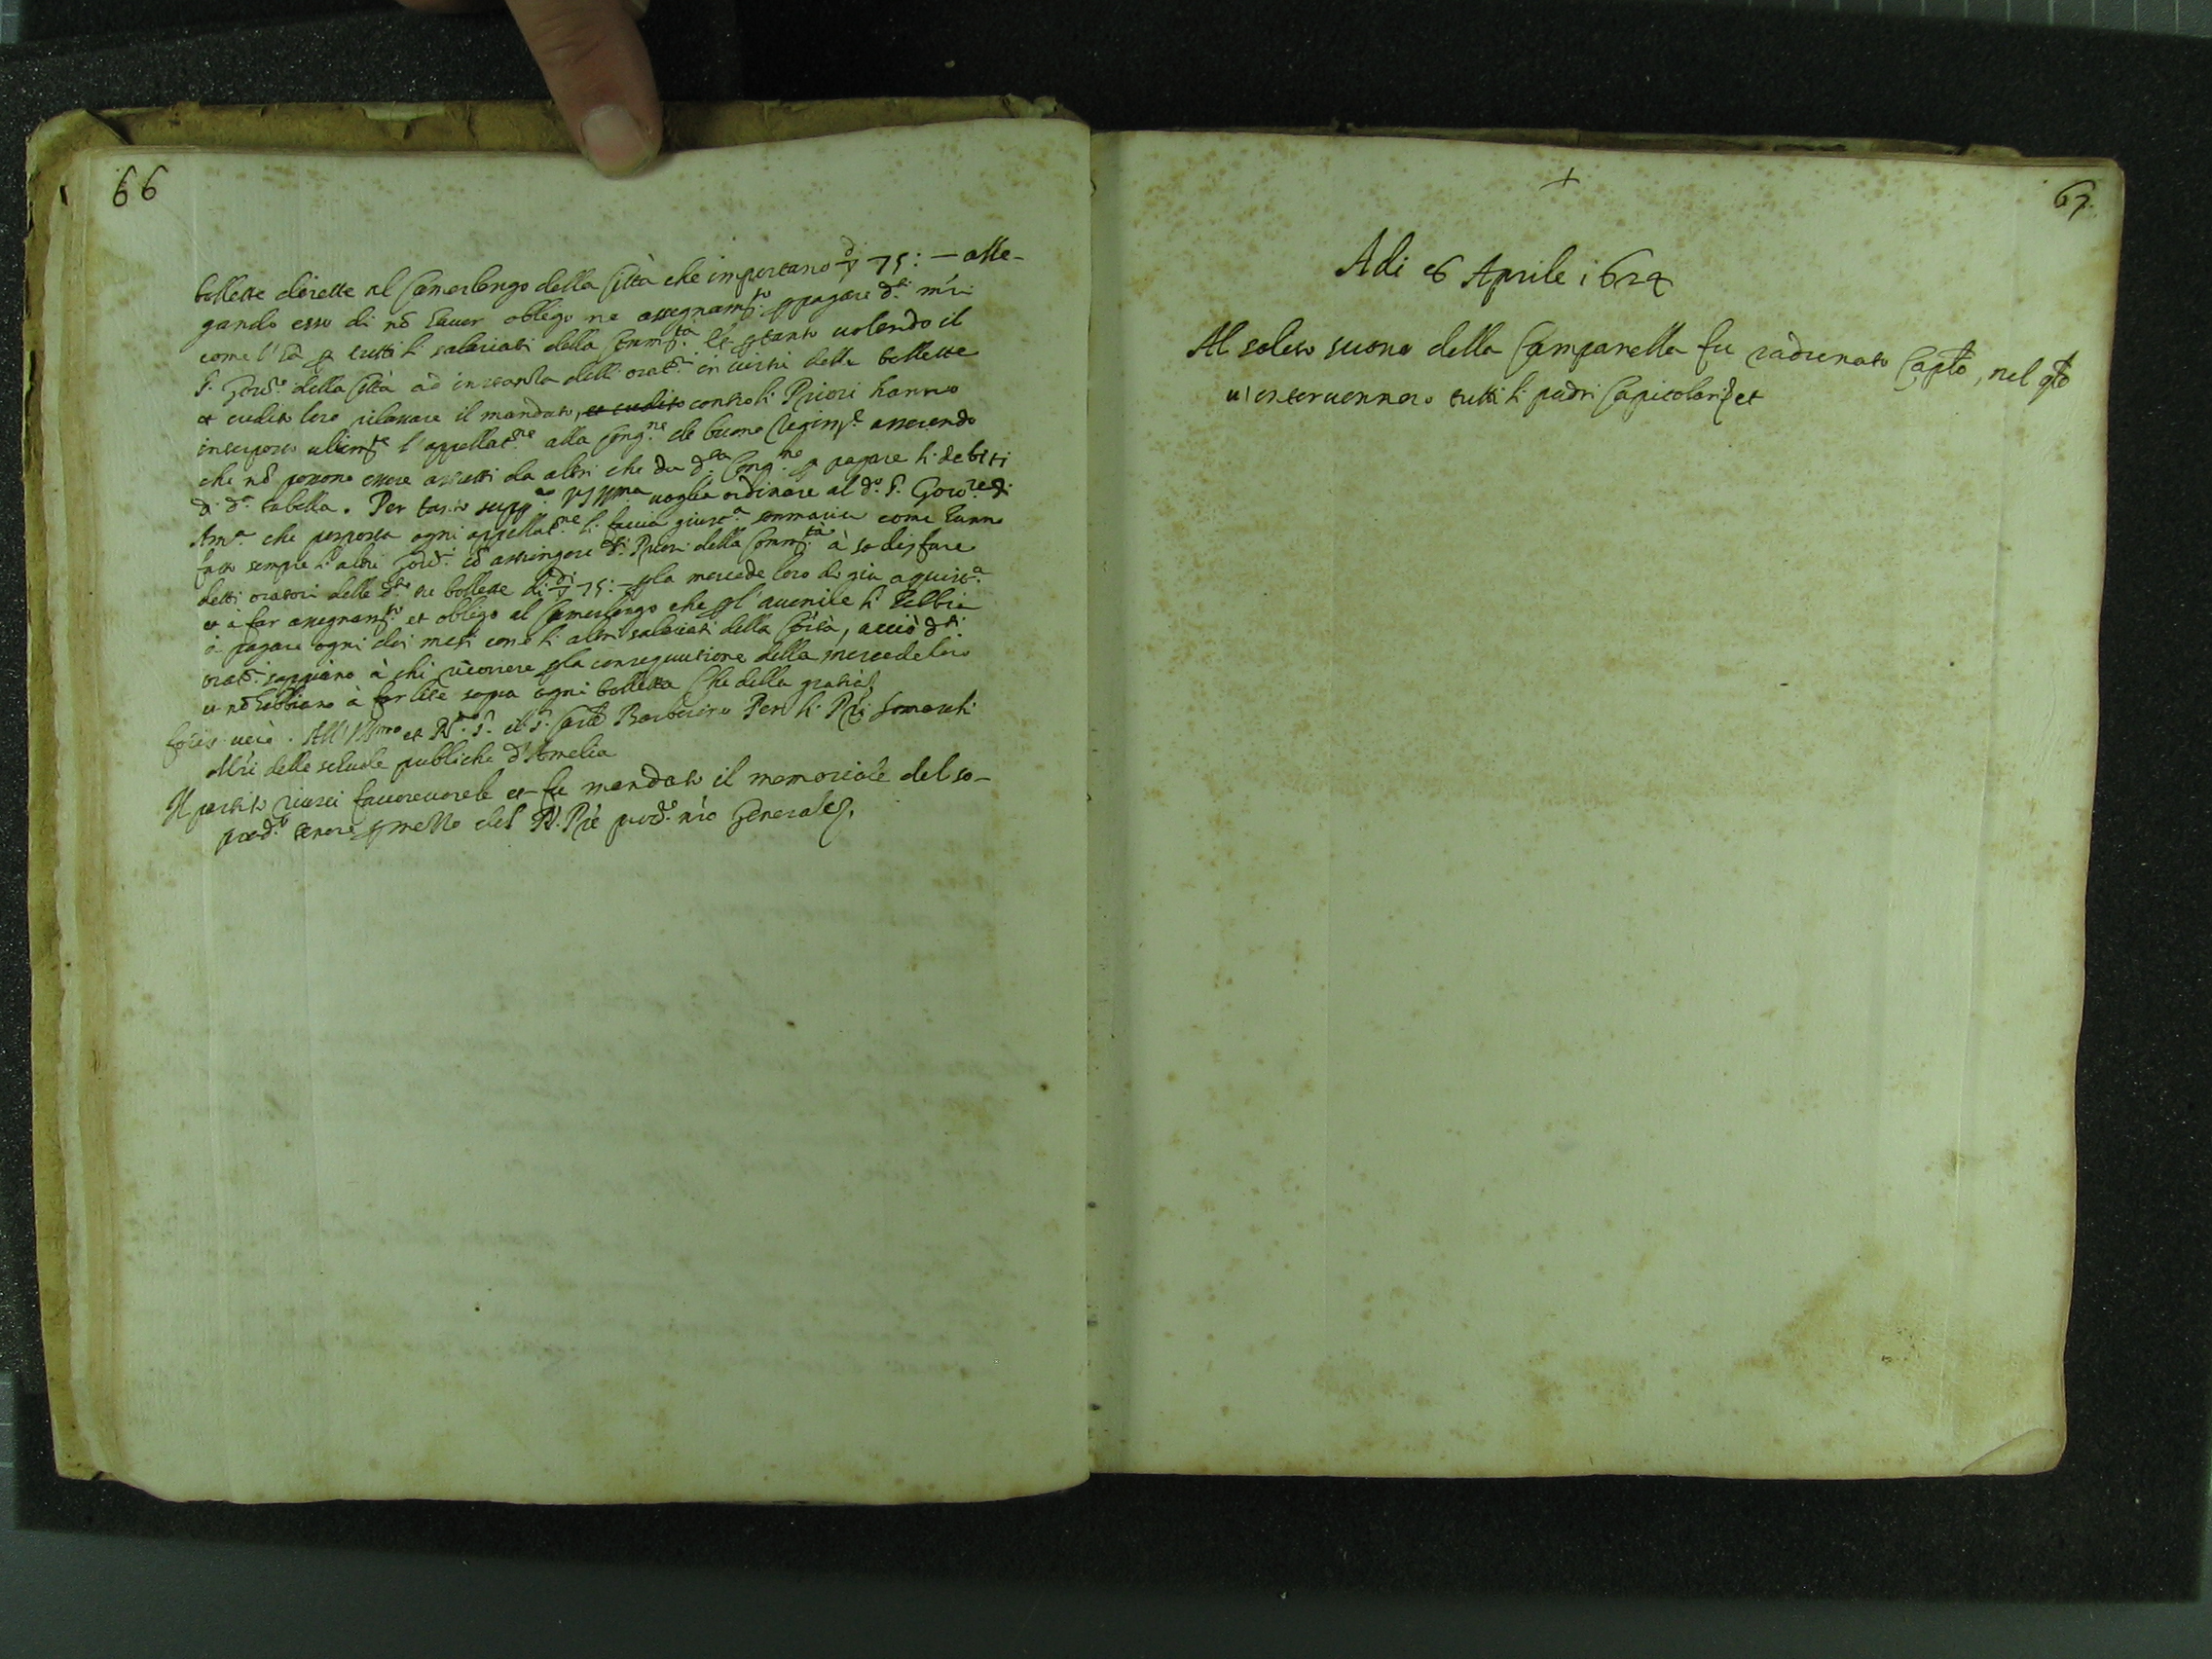 66
bollette dirette al Camerlengo della Città che importano 75: — alle-
gando esso di nō hauer obligo ne assegnamto. p pagare dti. mri
come l'hà p tutti li salariati della Commta. Et ptanto uolendo il
S. Goure. della Città ad instanza delli orati. in uirtù delle bollette
et rilassare il mandato, et contro li Priori hanno
interposto ultimte l'appellatne alla Congne. de buono Regimto. asserendo
che nō possono essere astretti da altri che da dta. Congne. p pagare li debiti
di da. tabella. Per tanto suppno VS Illma. uoglia ordinare al do. S. Goure. di
Ama. che posposta ogni appellatne li faccia giusta. sommaria come hanno
fatto sempre li altri Gouri. cō astringere dti. Priori della Commta. à sodisfare
detti oratori delle dte. sue bollette di 75: – p la mercede loro di già aquista.
et à far assegnamto. et obligo al Camerlengo che p l'auenire li debbia
à pagare ogni doi mesi come li altri salariati della Città, acciò dti.
orati. sappiano à chi ricorrere p la consequutione della mercede loro
et nō habbiano à far lite sopra ogni bolletta Che della gratia
foris uero. All'Illmo et Rmo. Sr. il S. Card Barberino Per li Pri Somaschi
Mri delle schuole publiche d'Amelia
Il partito riusci fauoreuole et fu mandato il memoriale del so-
prado. tenore p mezzo del P. Pre procre. nro Generale.
+
67.
Adi 6 Aprile 1624
Al solito suono della Campanella fu radunato Caplo, nel qle
u'interuennero tutti li padri Capitolari et